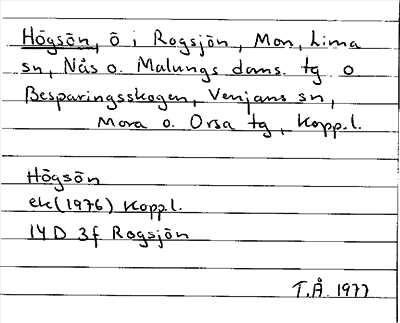 Högsön, ö i Rogsjön, Mon, Lima
sn, Nås o. Malungs doms. tg o
Besparingsskogen, Venjans sn,
Mora o. Orsa tg, Kopp.l.
Högsön
ek (1976) Kopp.l.
14 D 3f Rogsjön
T.Å. 1977